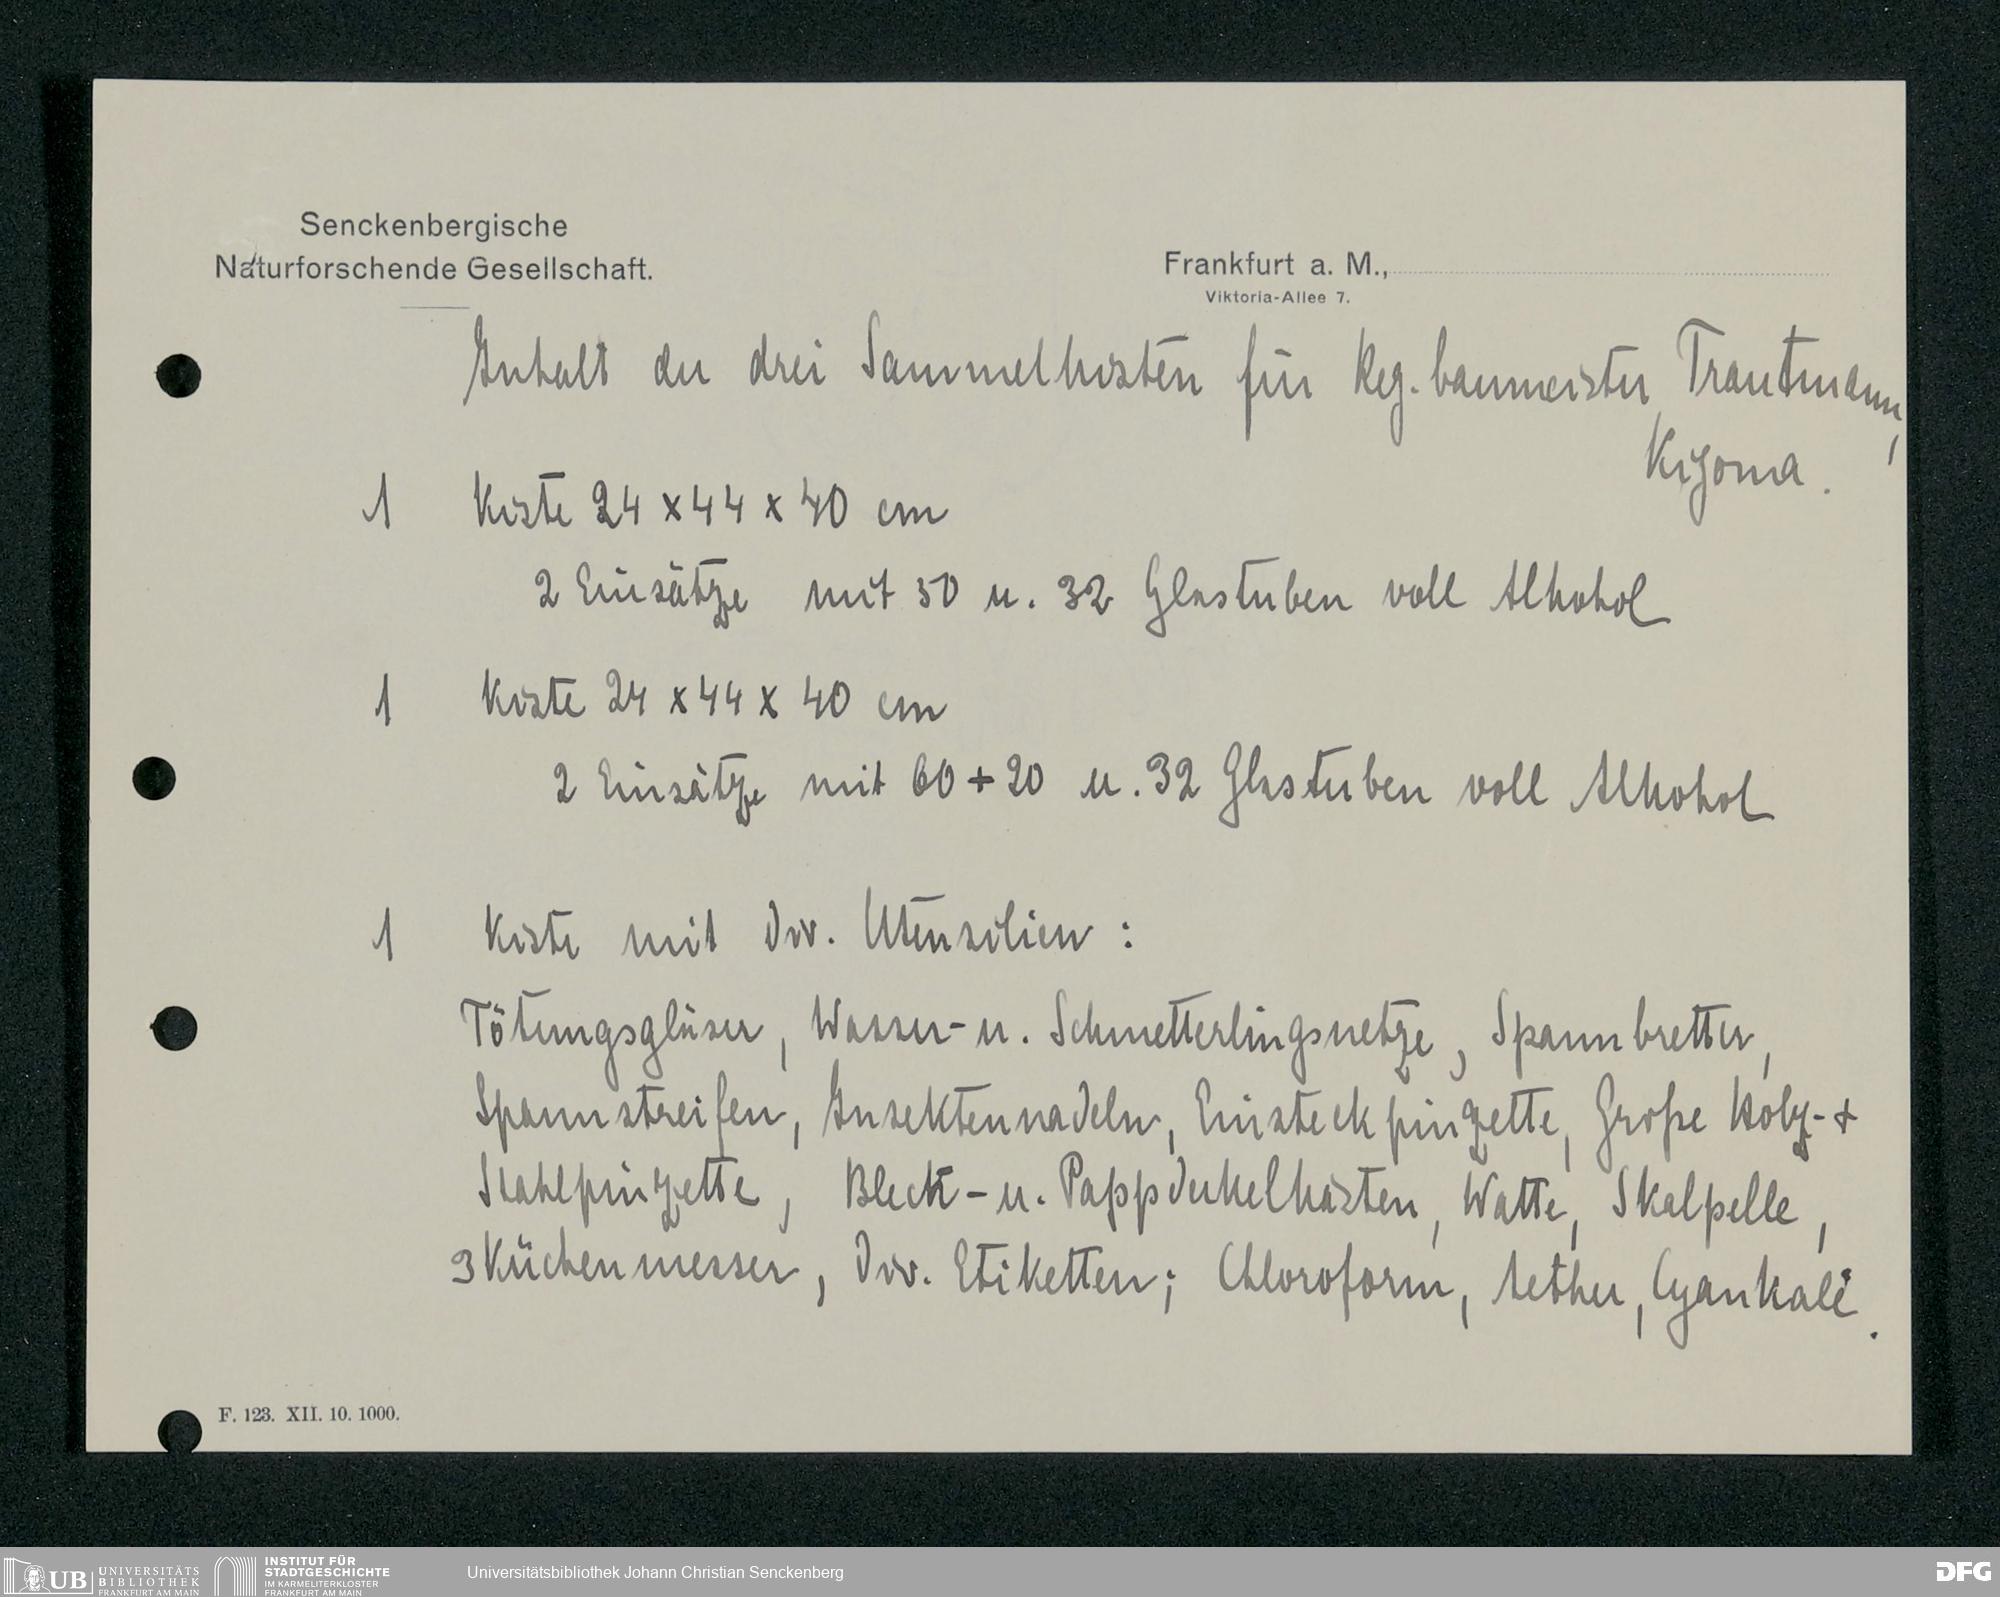 Senckenbergische
Naturforschende Gesellschaft.
Frankfurt a. M.,
Viktoria-Allee 7.
Inhalt der drei Sammelkisten für Reg. baumeister Trautmann,
Kigoma.
1 Kiste 24 x 44 x 40 cm
2 Einsätze mit 50 u. 32 Glastuben voll Alkohol
1 Kiste 24 x 44 x 40 cm
2 Einsätze mit 60 + 20 u. 32 Glastuben voll Alkohol
1 Kiste mit div. Utensilien :
Tötungsgläser, Wasser- u. Schmetterlingsnetze, Spannbretter,
Spannstreifen, Insektennadeln, Einsteckpinzette, Große Holz- +
Stahlpinzette, Blech- u. Pappdeckelkasten, Watte, Skalpelle,
3 Küchenmesser, div. Etiketten; Chloroform, Aether, Cyankali.
F. 123. XII. 10. 1000.
UB UNIVERSITÄTS
BIBLIOTHEK
FRANKFURT AM MAIN
INSTITUT FÜR
STADTGESCHICHTE
IM KARMELITERKLOSTER
FRANKFURT AM MAIN
Universitätsbibliothek Johann Christian Senckenberg
DFG